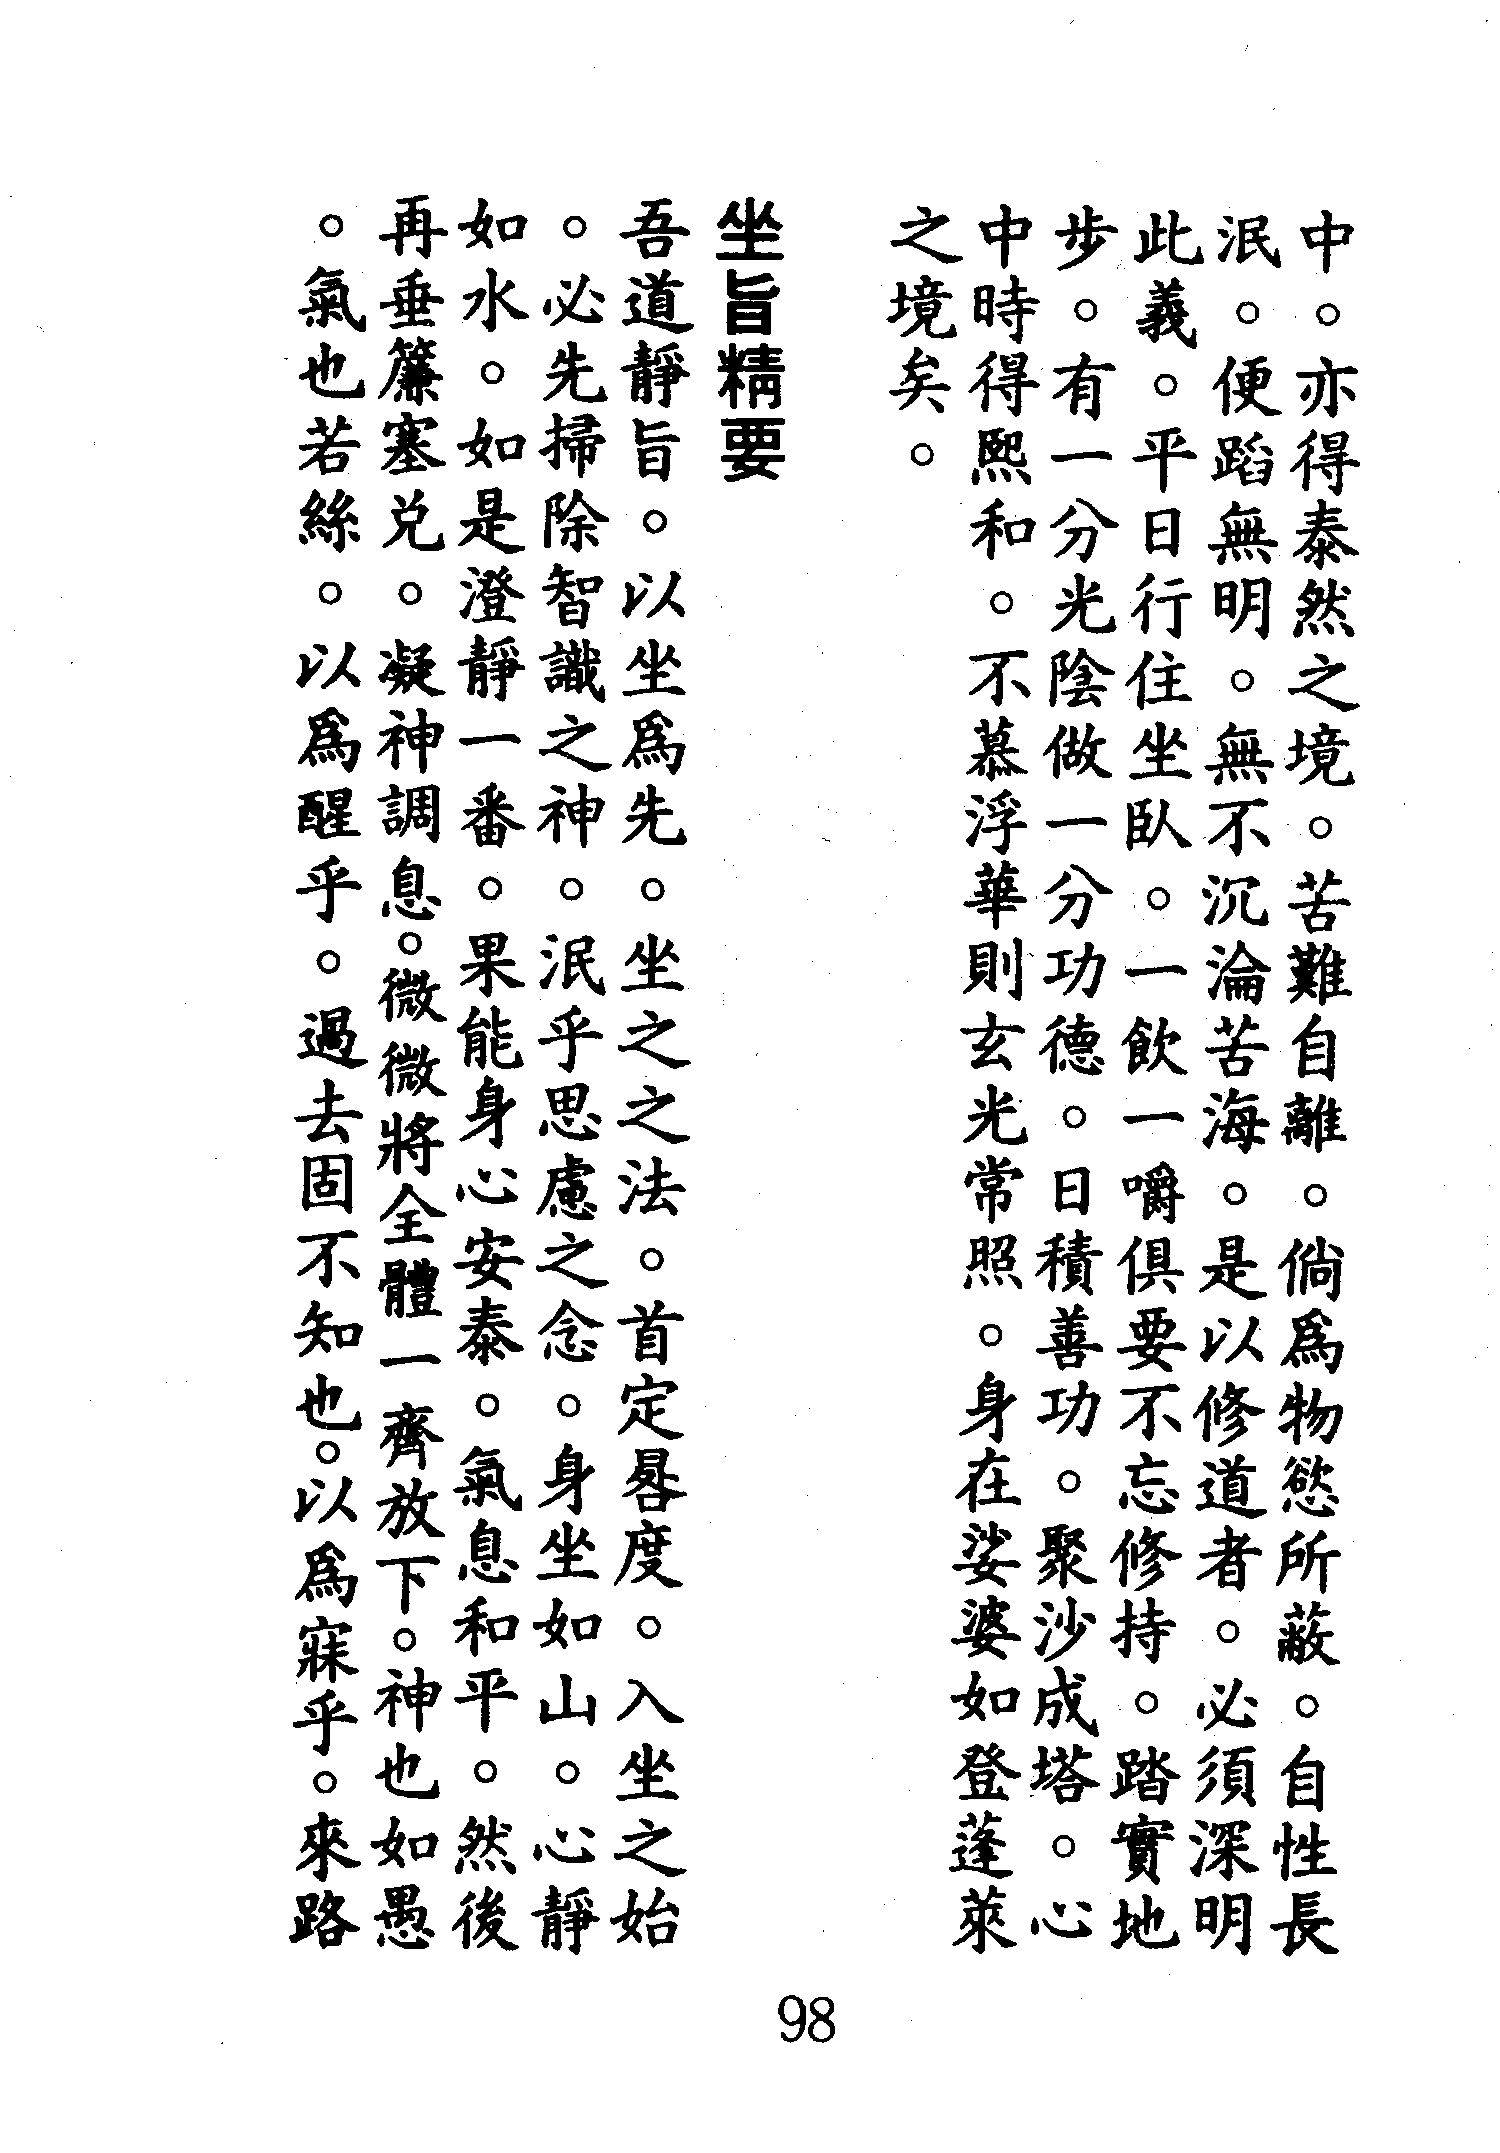 中。亦得泰然之境。苦難自離。倘爲物慾所蔽。自性長
泯。便蹈無明。無不沉淪苦海。是以修道者。必須深明
此義。平日行住坐臥。一飲一嚼俱要不忘修持。踏實地
步。有一分光陰做一分功德。日積善功。聚沙成塔。心
中時得熙和。不慕浮華則玄光常照。身在娑婆如登蓬萊
之境矣。
坐旨精要
吾道靜旨。以坐爲先。坐之之法。首定晷度。入坐之始
。必先掃除智識之神。泯乎思慮之念。身坐如山。心靜
如水。如是澄靜一番。果能身心安泰。氣息和平。然後
再垂簾塞兌。凝神調息。微微將全體一齊放下。神也如愚
。氣也若絲。以爲醒乎。過去固不知也。以爲寐乎。來路
98